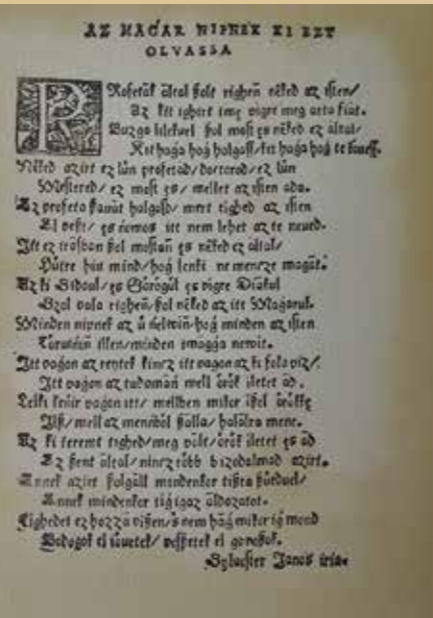 AZ MAGAR NIPNEK KI EZT
OLVASSA
PRofeták által szolt righen néked az isten/
Az kit igirt ime vigre meg atta fiát.
Buzgo lilekuel szol most es néked ez által/
Kit haga hog halgass/ kit haga hog te
Néked azirt ez lün profetád/ doctorod/ ez lün
Mestered/ ez most es/ mellet az isten ada.
Az profeta szauát halgasd/ mert tighed az isten
El veszt/ es nem lehet az te neued.
Itt ez irásban szol mostan es néked ez által/
Hütre hiu mind/ hog senki ne mencze magát.
Az ki Sidoul/ es Görögül es vigre Diákul
Szol vala righen/ szol néked az itt Magarul.
Minden nipnek az ü nelwin/ hog minden az isten
Töruinin illen/ minden imagga neuit.
Itt vagon az reytek kincz itt vagon az ki folo viz/
Itt vagon az tudoman mell örök iletet ad.
Lelki kenir vagon itt/ mellben mikor iszel örökke
Ilsz/ mell az menböl szálla/ halálra mene.
Az ki teremt tighed/ meg vált/ örök iletet es ád
Ez szent által/ nincz több bizodalmad azirt.
Annek azirt szolgáll mindenkor tiszta szüuduel/
Annek mindenkor tig igaz áldozatot.
Tighedet ez hozzá viszen/ s nem hág mikor ig mond
Bodogok el iöuetek/ veszszetek el gonoszok.
Sylvester Janos iria.